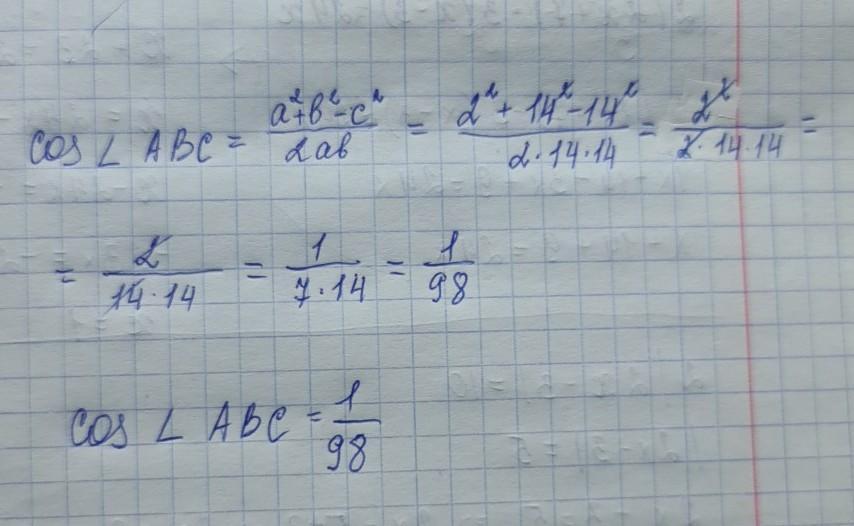 cos ∠ ABC = (a²+b²-c²)/(2ab) = (2² + 14² - 14²)/(2·14·14) = 2²/(2·14·14) =
= 2/(14·14) = 1/(7·14) = 1/98
cos ∠ ABC = 1/98